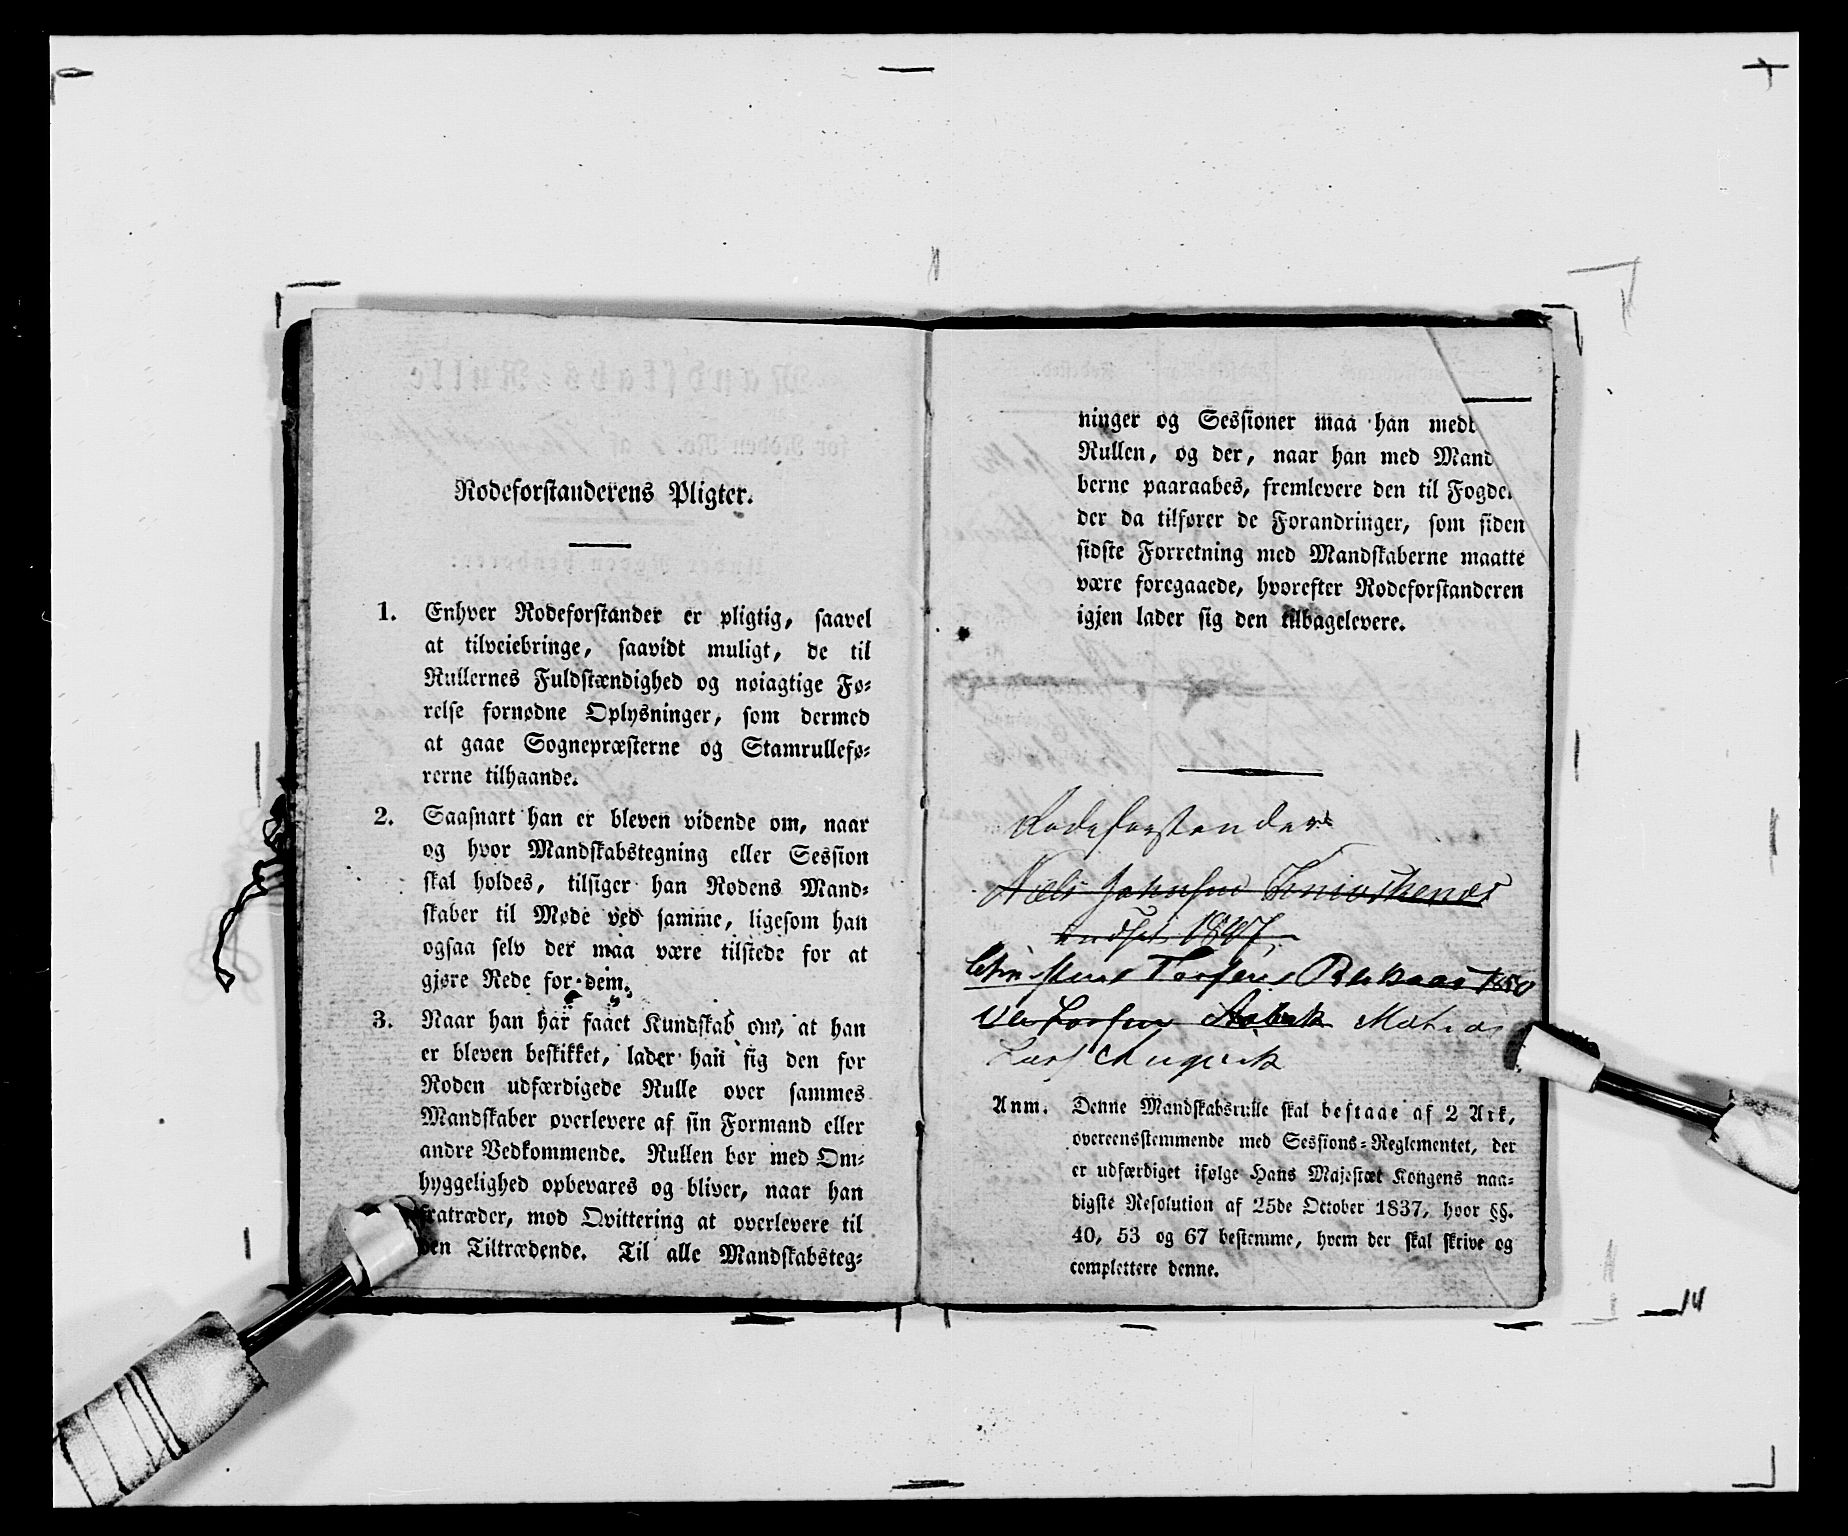 Rodeforstanderens Pligter.
1. Enhver Rodeforstander er pligtig, saavel
at tilveiebringe, saavidt muligt, de til
Rullernes Fuldstændighed og nøiagtige Fø-
relse fornødne Oplysninger, som dermed
at gaae Sognepræsterne og Stamrullefø-
rerne tilhaande.
2. Saasnart han er bleven vidende om, naar
og hvor Mandskabstegning eller Session
skal holdes, tilsiger han Rodens Mand-
skaber til Møde ved samme, ligesom han
ogsaa selv der maa være tilstede for at
gjøre Rede for dem.
3. Naar han har faaet Kundskab om, at han
er bleven beskikket, lader han sig den for
Roden udfærdigede Rulle over sammes
Mandskaber overlevere af sin Formand eller
andre Vedkommende. Rullen bør med Om-
hyggelighed opbevares og bliver, naar han
fratræder, mod Qvittering at overlevere til
den Tiltrædende. Til alle Mandskabsteg-
ninger og Sessioner maa han medb
Rullen, og der, naar han med Mand
berne paaraabes, fremlevere den til Fogde
der da tilfører de Forandringer, som siden
sidste Forretning med Mandskaberne maatte
være foregaaede, hvorefter Rodeforstanderen
igjen lader sig den tilbagelevere.
Rodeforstander
Niels Johnsen
1847
1850
Lars
Anm. Denne Mandskabsrulle skal bestaae af 2 Ark,
overeensstemmende med Sessions-Reglementet, der
er udfærdiget ifølge Hans Majestæt Kongens naa-
digste Resolution af 25de October 1837, hvor §§.
40, 53 og 67 bestemme, hvem der skal skrive og
complettere denne.
14